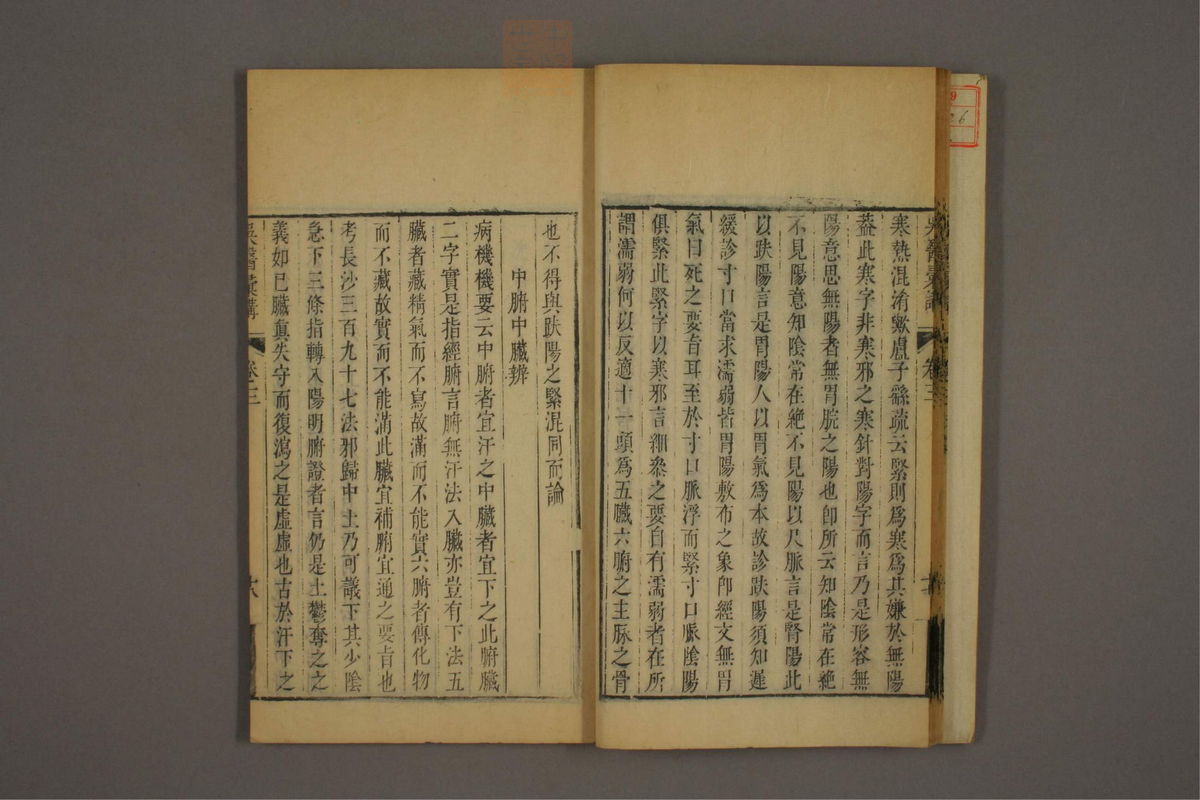 寒熱混淆歟盧子繇疏云緊則爲寒爲其嫌於無陽
葢此寒字非寒邪之寒針對陽字而言乃是形容無
陽意思無陽者無胃脘之陽也卽所云知陰常在絶
不見陽意知陰常在絶不見陽以尺脈言是腎陽此
以趺陽言是胃陽人以胃氣爲本故診趺陽須知遲
緩診寸口當求濡弱皆胃陽敷布之象卽經文無胃
氣曰死之要㫖耳至於寸口脈浮而緊寸口脈陰陽
俱緊此緊字以寒邪言細叅之要自有濡弱者在所
謂濡弱何以反適十一頭爲五臟六腑之主脉之骨
吳醫彙講
卷三
也不得與趺陽之緊混同而論
中腑中臟辨
病機機要云中腑者宜汗之中臟者宜下之此腑臟
二字實是指經腑言腑無汗法入臟亦豈有下法五
臟者藏精氣而不寫故滿而不能實六腑者傳化物
而不藏故實而不能滿此臟宜補腑宜通之要㫖也
考長沙三百九十七法邪歸中土乃可議下其少陰
急下三條指轉入陽明腑證者言仍是土鬱奪之之
義如已臟眞失守而復瀉之是虛虛也古於汗下之
吳醫彙講
卷三